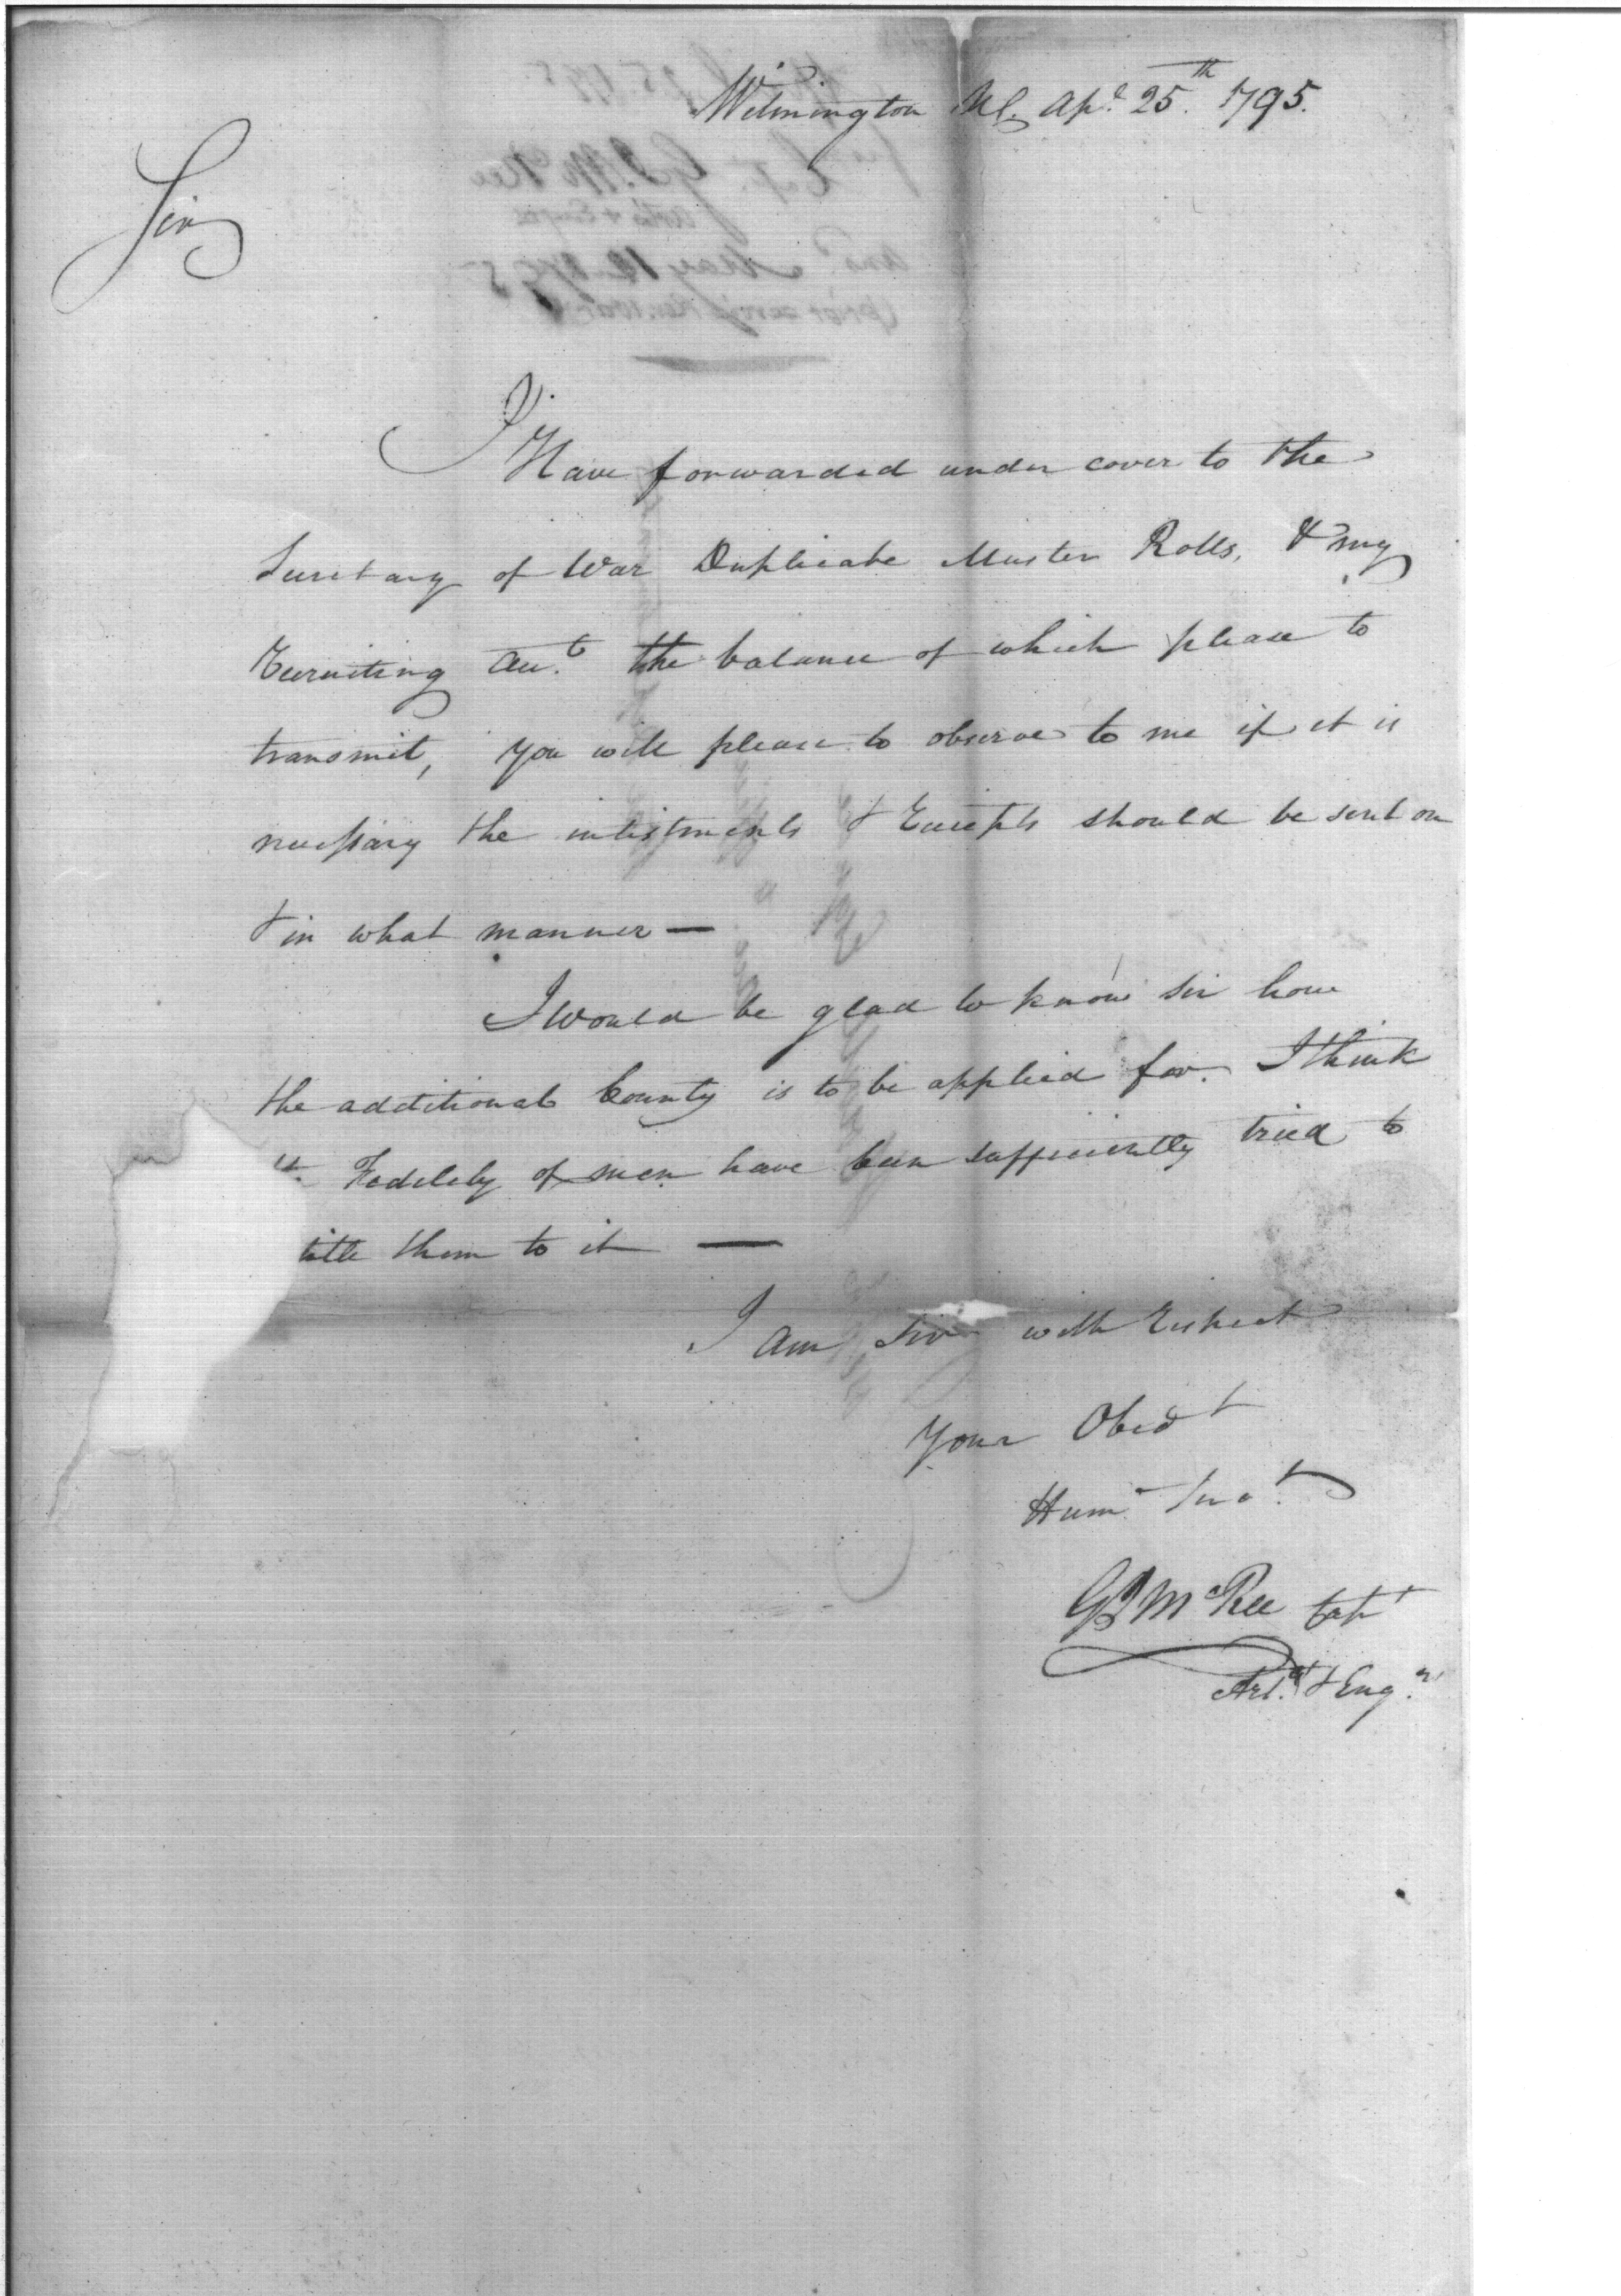 Wilmington NC. Apl. 25th. 1795.
Sir
I Have forwarded under cover to the
Secretary of War Duplicate Muster Rolls, & my
recruiting Acct. the balance of which please to
transmit, you will please to observe to me if it is
necessary the inlistments & receipts should be sent on
& in what manner —
I Would be glad to know sir how
the additional bounty is to be applied for. I think
Fedelity of men have been sufficiently tried to
title them to it —
I am Sir with respect
Your Obedt
Humb. Servt.
GJ McRee Capt
Art. & Engr.